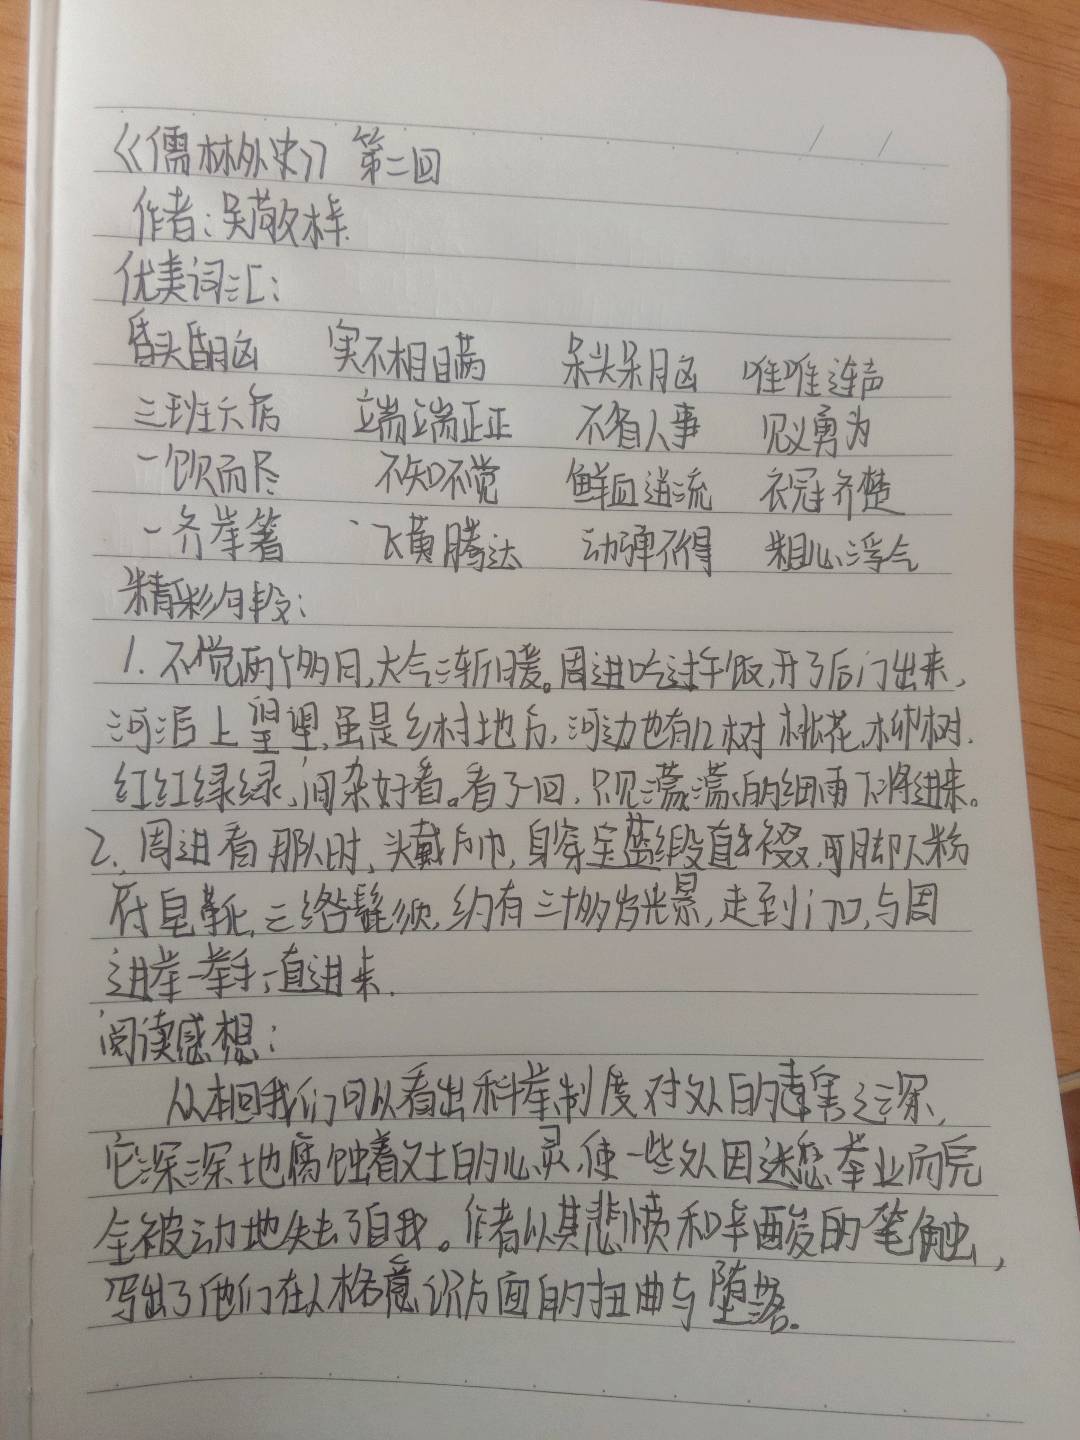 《儒林外史》 第二回
作者:吴敬梓
优美词汇:
昏头昏脑 实不相瞒 呆头呆脑 唯唯连声
三班六房 端端正正 不省人事 见义勇为
一饮而尽 不知不觉 鲜血迸流 衣冠齐楚
一齐举箸 飞黄腾达 动弹不得 粗心浮气
精彩句段:
1. 不觉两个多月,天气渐渐暖。周进吃过午饭,开了后门出来,
河沿上望望,虽是乡村地方,河边也有几树桃花,柳树,
红红绿绿,间杂好看。看了一回,只见濛濛的细雨下将进来。
2. 周进看那人时,头戴方巾,身穿宝蓝缎直裰,脚下粉
底皂靴,三绺髭须,约有三十多岁光景,走到门口,与周
进举一举手,一直进来.
阅读感想:
从本回我们可以看出科举制度对文人的毒害之深,
它深深地腐蚀着文士的心灵,使一些文人因迷恋举业而完
全被动地失去了自我。作者以其悲愤和辛酸的笔触,
写出了他们在人格意识方面的扭曲与堕落.